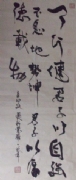 天行健君子以自強
不息地勢坤君子以厚
德載物